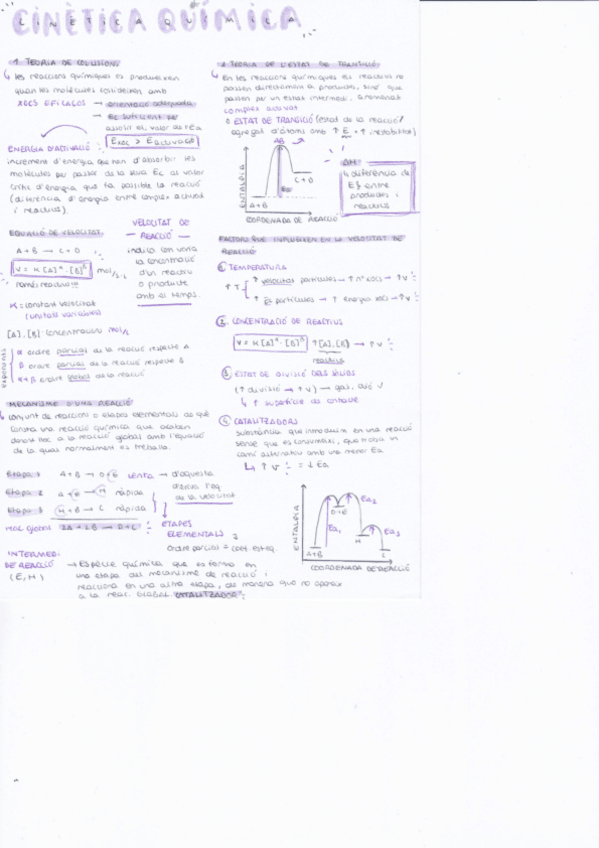 CINÈTICA QUÍMICA
1 TEORIA DE COLISIONS
↳ les reaccions químiques es produeixen
quan les molècules col·lideixen amb
XOCS EFICAÇOS → orientació adequada
→ Ec suficient per
assolir el valor de l'Ea
Exoc > Eactivació
ENERGIA D'ACTIVACIÓ
increment d'energia que han d'absorbir les
molècules per passar de la seva Ec al valor
crític d'energia que fa possible la reacció
(diferència d'energia entre complex activat
i reactius).
EQUACIÓ DE VELOCITAT
A + B → C + D
V = K [A]^α · [B]^β mol/s·L
només reactius!!!
K = constant velocitat
(unitats variables)
[A], [B]: concentracions mol/L
exponents
α ordre parcial de la reacció respecte A
β ordre parcial de la reacció respecte B
α + β ordre global de la reacció
VELOCITAT DE
— REACCIÓ —
indica com varia
la concentració
d'un reactiu
o producte
amb el temps.
MECANISME D'UNA REACCIÓ
↳ conjunt de reaccions o etapes elementals de què
consta una reacció química que acaben
donant lloc a la reacció global amb l'equació
de la quals normalment es treballa.
Etapa 1 A + B → D + E lenta → d'aquesta
Etapa 2 A + E → H ràpida
d'acció l'eq.
de la velocitat
Etapa 3 H + B → C ràpida
reac. global 2A + 2B → D + C
ETAPES
ELEMENTALS
Ordre parcial = coef. esteq.
INTERMED.
DE REACCIÓ
(E, H)
→ Espècie química que es forma en
una etapa del mecanisme de reacció i
reacciona en una altra etapa, de manera que no apareix
a la reac. global CATALITZADOR
2 TEORIA DE L'ESTAT DE TRANSICIÓ
↳ En les reaccions químiques els reactius no
passen directament a productes, sinó que
passen per un estat intermedi, anomenat
complex activat
ESTAT DE TRANSICIÓ (estat de la reacció/
agregat d'àtoms amb ↑ E i ↑ inestabilitat)
AB
ENTALPIA
Ea
C + D
A + B
COORDENADA DE REACCIÓ
ΔH
↳ diferència de
E entre
productes i
reactius
FACTORS QUE INFLUEIXEN EN LA VELOCITAT DE
REACCIÓ
1 TEMPERATURA
↑ T
↑ velocitat partícules → ↑ nº xocs → ↑ V
↑ Ec partícules → ↑ energia xocs → ↑ V
2 CONCENTRACIÓ DE REACTIUS
V = K [A]^α · [B]^β ↑ [A], [B] → ↑ V
reactius
3 ESTAT DE DIVISIÓ DELS SÒLIDS
(↑ divisió → ↑ V)
↳ ↑ superfície de contacte
4 CATALITZADORS
substància que introduïm en una reacció
sense que es consumeixi, que troba un
camí alternatiu amb una menor Ea
↳ ↑ V = ↓ Ea
ENTALPIA
Ea1
Ea2
Ea3
A+B
D+E
H
C
COORDENADA DE REACCIÓ